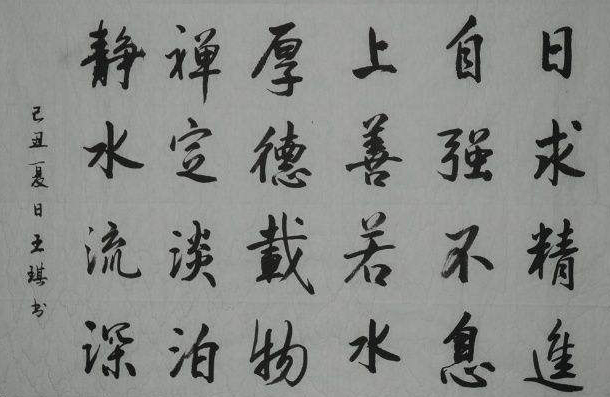 日求精進
自强不息
上善若水
厚德載物
禅定淡泊
静水流深
己丑夏日王琪书